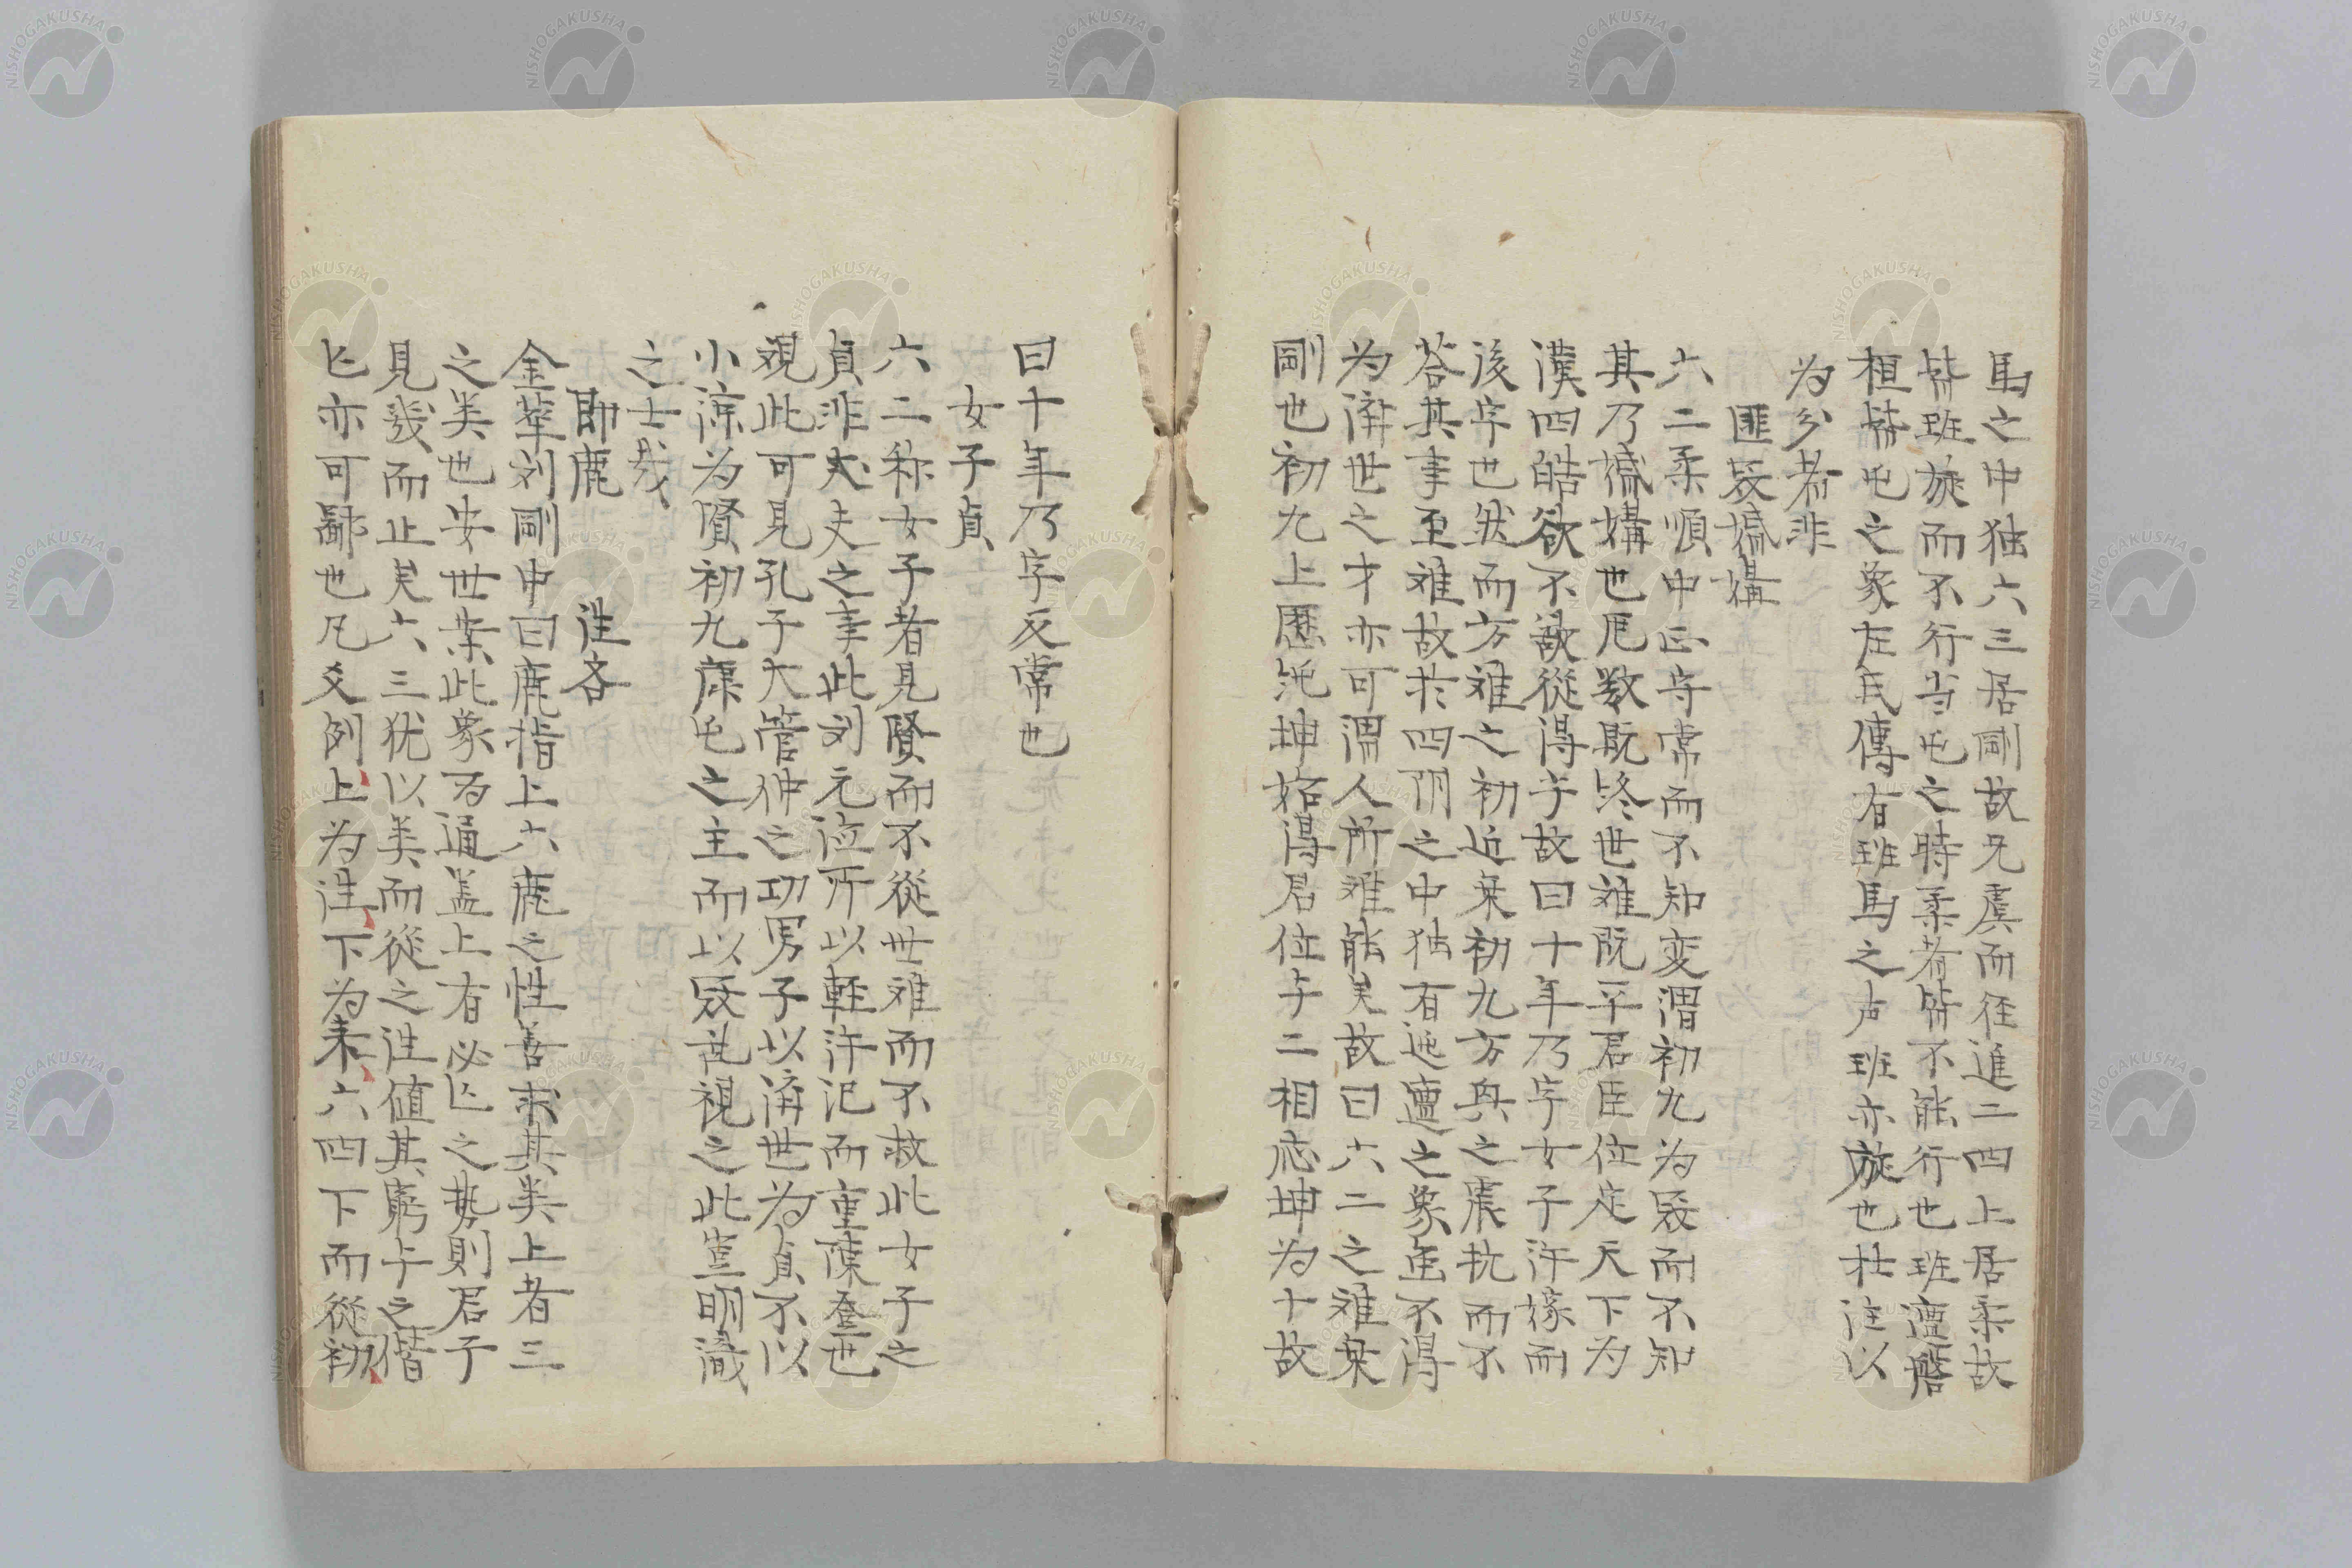 馬之中独六三居剛故无虞而往進二四上居柔故
皆班旋而不行当屯之時柔者皆不能行也班邅磐
桓皆屯之象左氏傳有班馬之声班亦旋也杜注以
为分者非
匪寇婚媾
六二柔順中正守常而不知变謂初九为寇而不知
其乃婚媾也厄数既終世難既平君臣位定天下为
漢四皓欲不欲從得字故曰十年乃字女子許嫁而
後字也然而方難之初近乗初九方與之震抗而不
答其事至难故於四阴之中独有迍邅之象在不得
为濟世之才亦可謂人所难能矣故曰六二之难乗
剛也初九上應純坤始得君位与二相應坤为十故
曰十年乃字反常也
女子貞
六二称女子者見賢而不從世难而不救此女子之
貞非大夫之事此刘元泣所以軽許氾而重陳登也
观此可見孔子大管仲之功男子以濟世为貞不以
小諒为賢初九康屯之主而以寇乱視之此豈明識
之士哉
即鹿　往吝
金華刘剛中曰鹿指上六鹿之性善求其类上者三
之类也安世案此象为通盖上有必亡之勢則君子
見幾而止矣六三犹以类而從之往値其窮与之偕
亡亦可鄙也凡爻例上为往下为来六四下而從初
NISHOGAKUSHA